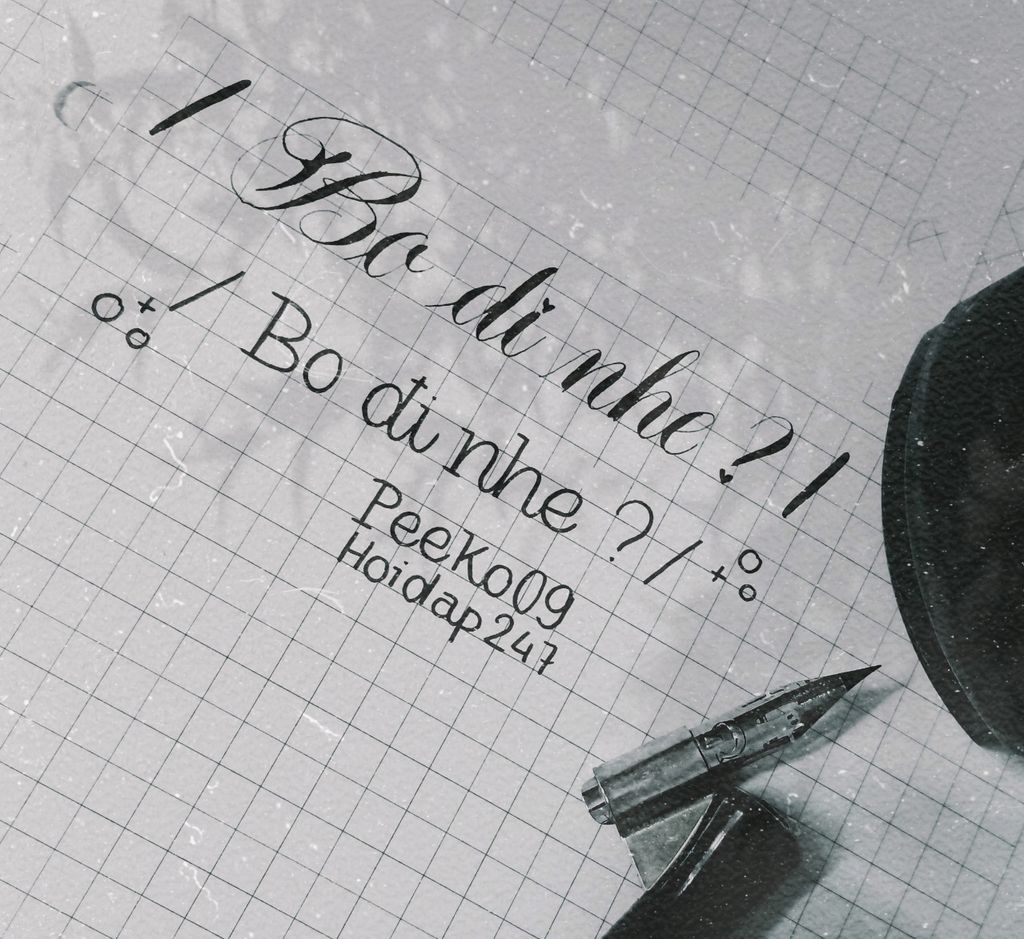 / Bo di nhe ? /
/ Bo đi nhe ? /
Peeko09
Hoidap247